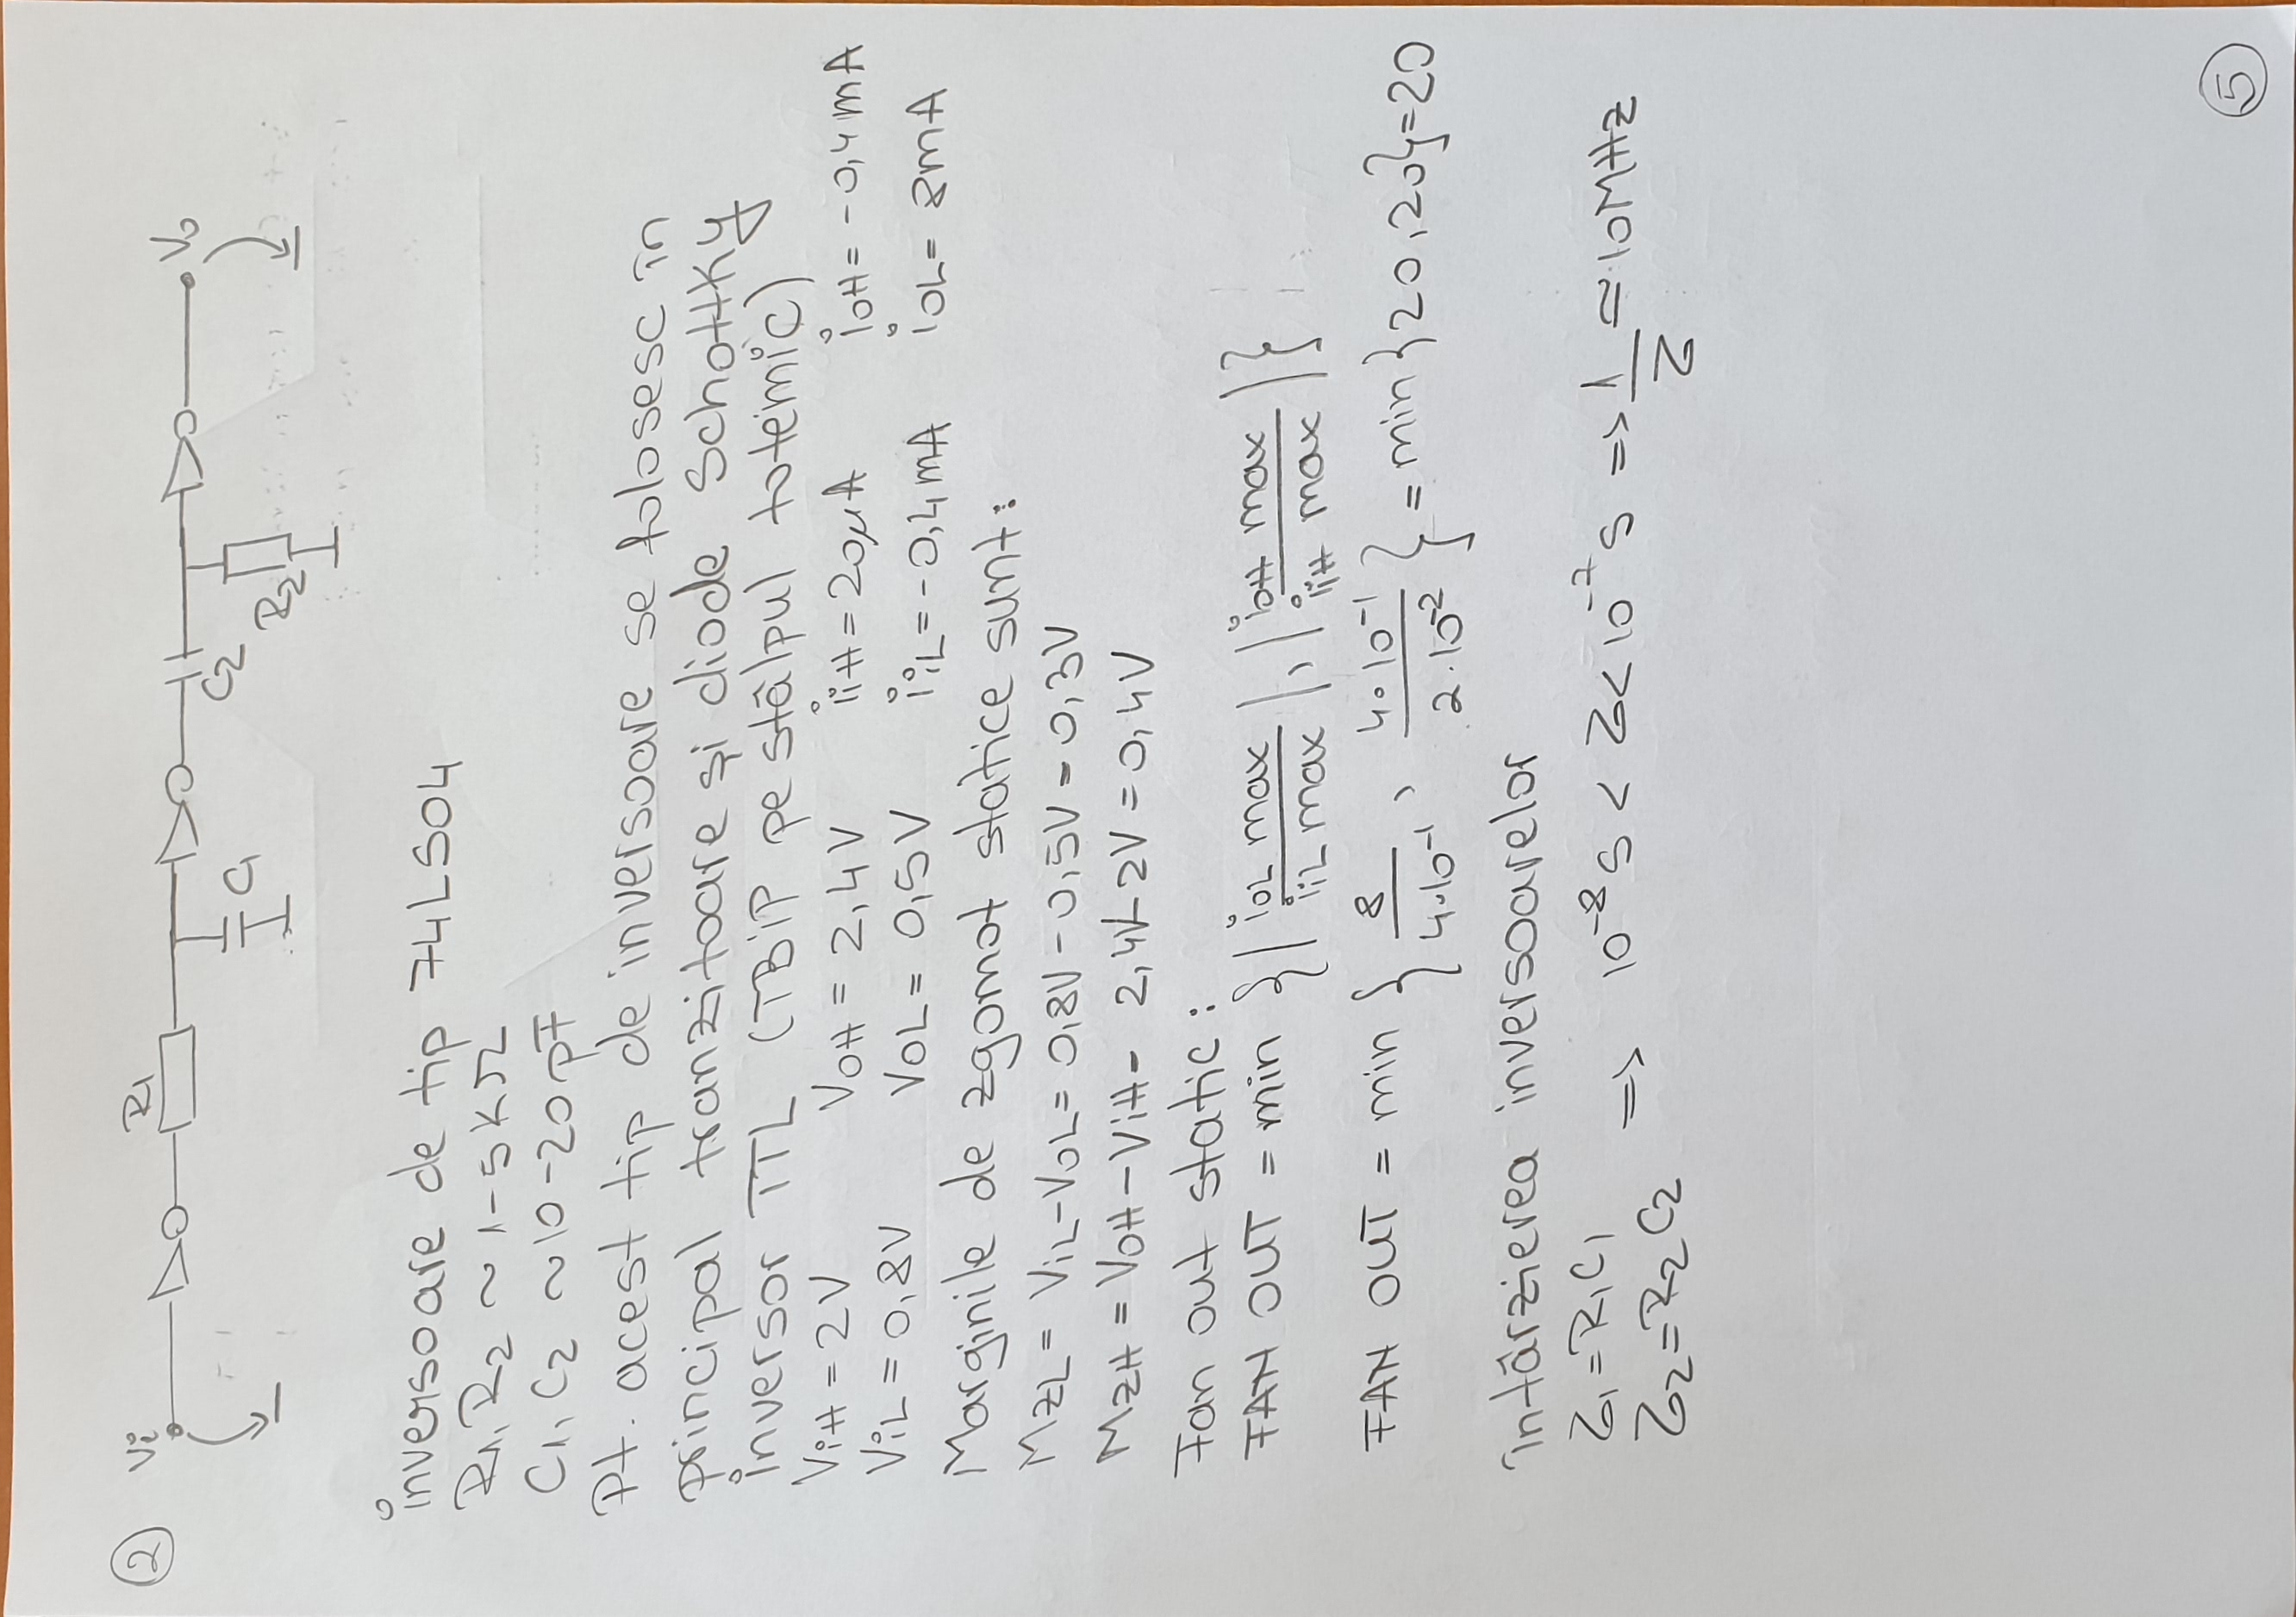 2
Vi R1 C1 C2 R2 Vo
inversoare de tip 74LS04
R1, R2 ~ 1-5KΩ
C1, C2 ~ 10-20pF
Pt. acest tip de inversoare se folosesc în
principal tranzitoare și diode Schottky
inversor TTL (TBIP pe stâlpul totemic)
ViH = 2V VOH = 2,4V iiH = 20μA iOH = -0,4mA
ViL = 0,8V VOL = 0,5V iiL = -0,4mA iOL = 8mA
Marginile de zgomot statice sunt:
MZL = ViL-VOL = 0,8V - 0,5V = 0,3V
MZH = VOH-ViH = 2,4V-2V = 0,4V
Fan out static:
FAN OUT = min {|iOL max / iiL max|, |iOH max / iiH max|}
FAN OUT = min { 8 / 4·10⁻¹, 4·10⁻¹ / 2·10⁻² } = min{20,20}=20
întârzierea inversoarelor
τ1 = R1C1
τ2 = R2C2 => 10⁻⁸s < τ < 10⁻⁷s => 1/τ ≃ 10MHz
5